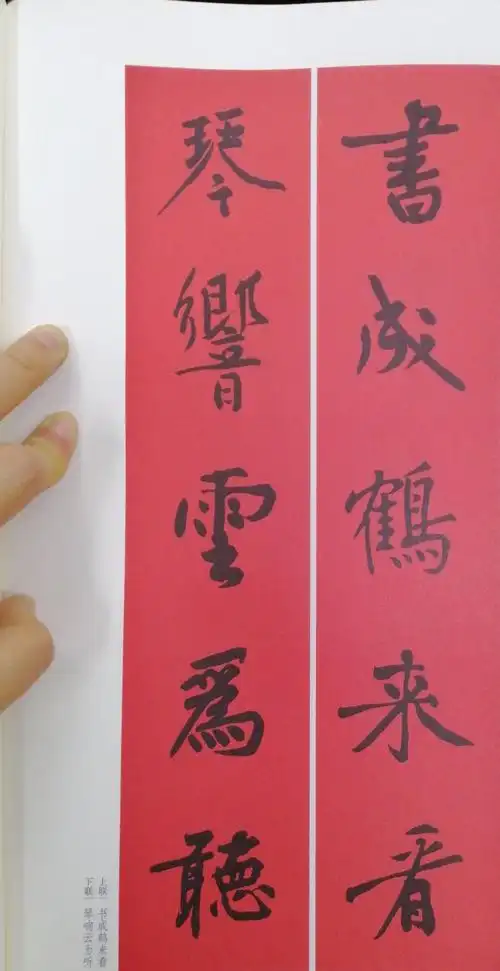 書成鶴来看
琴響雲爲聽
上联 书成鹤来看
下联 琴响云为听